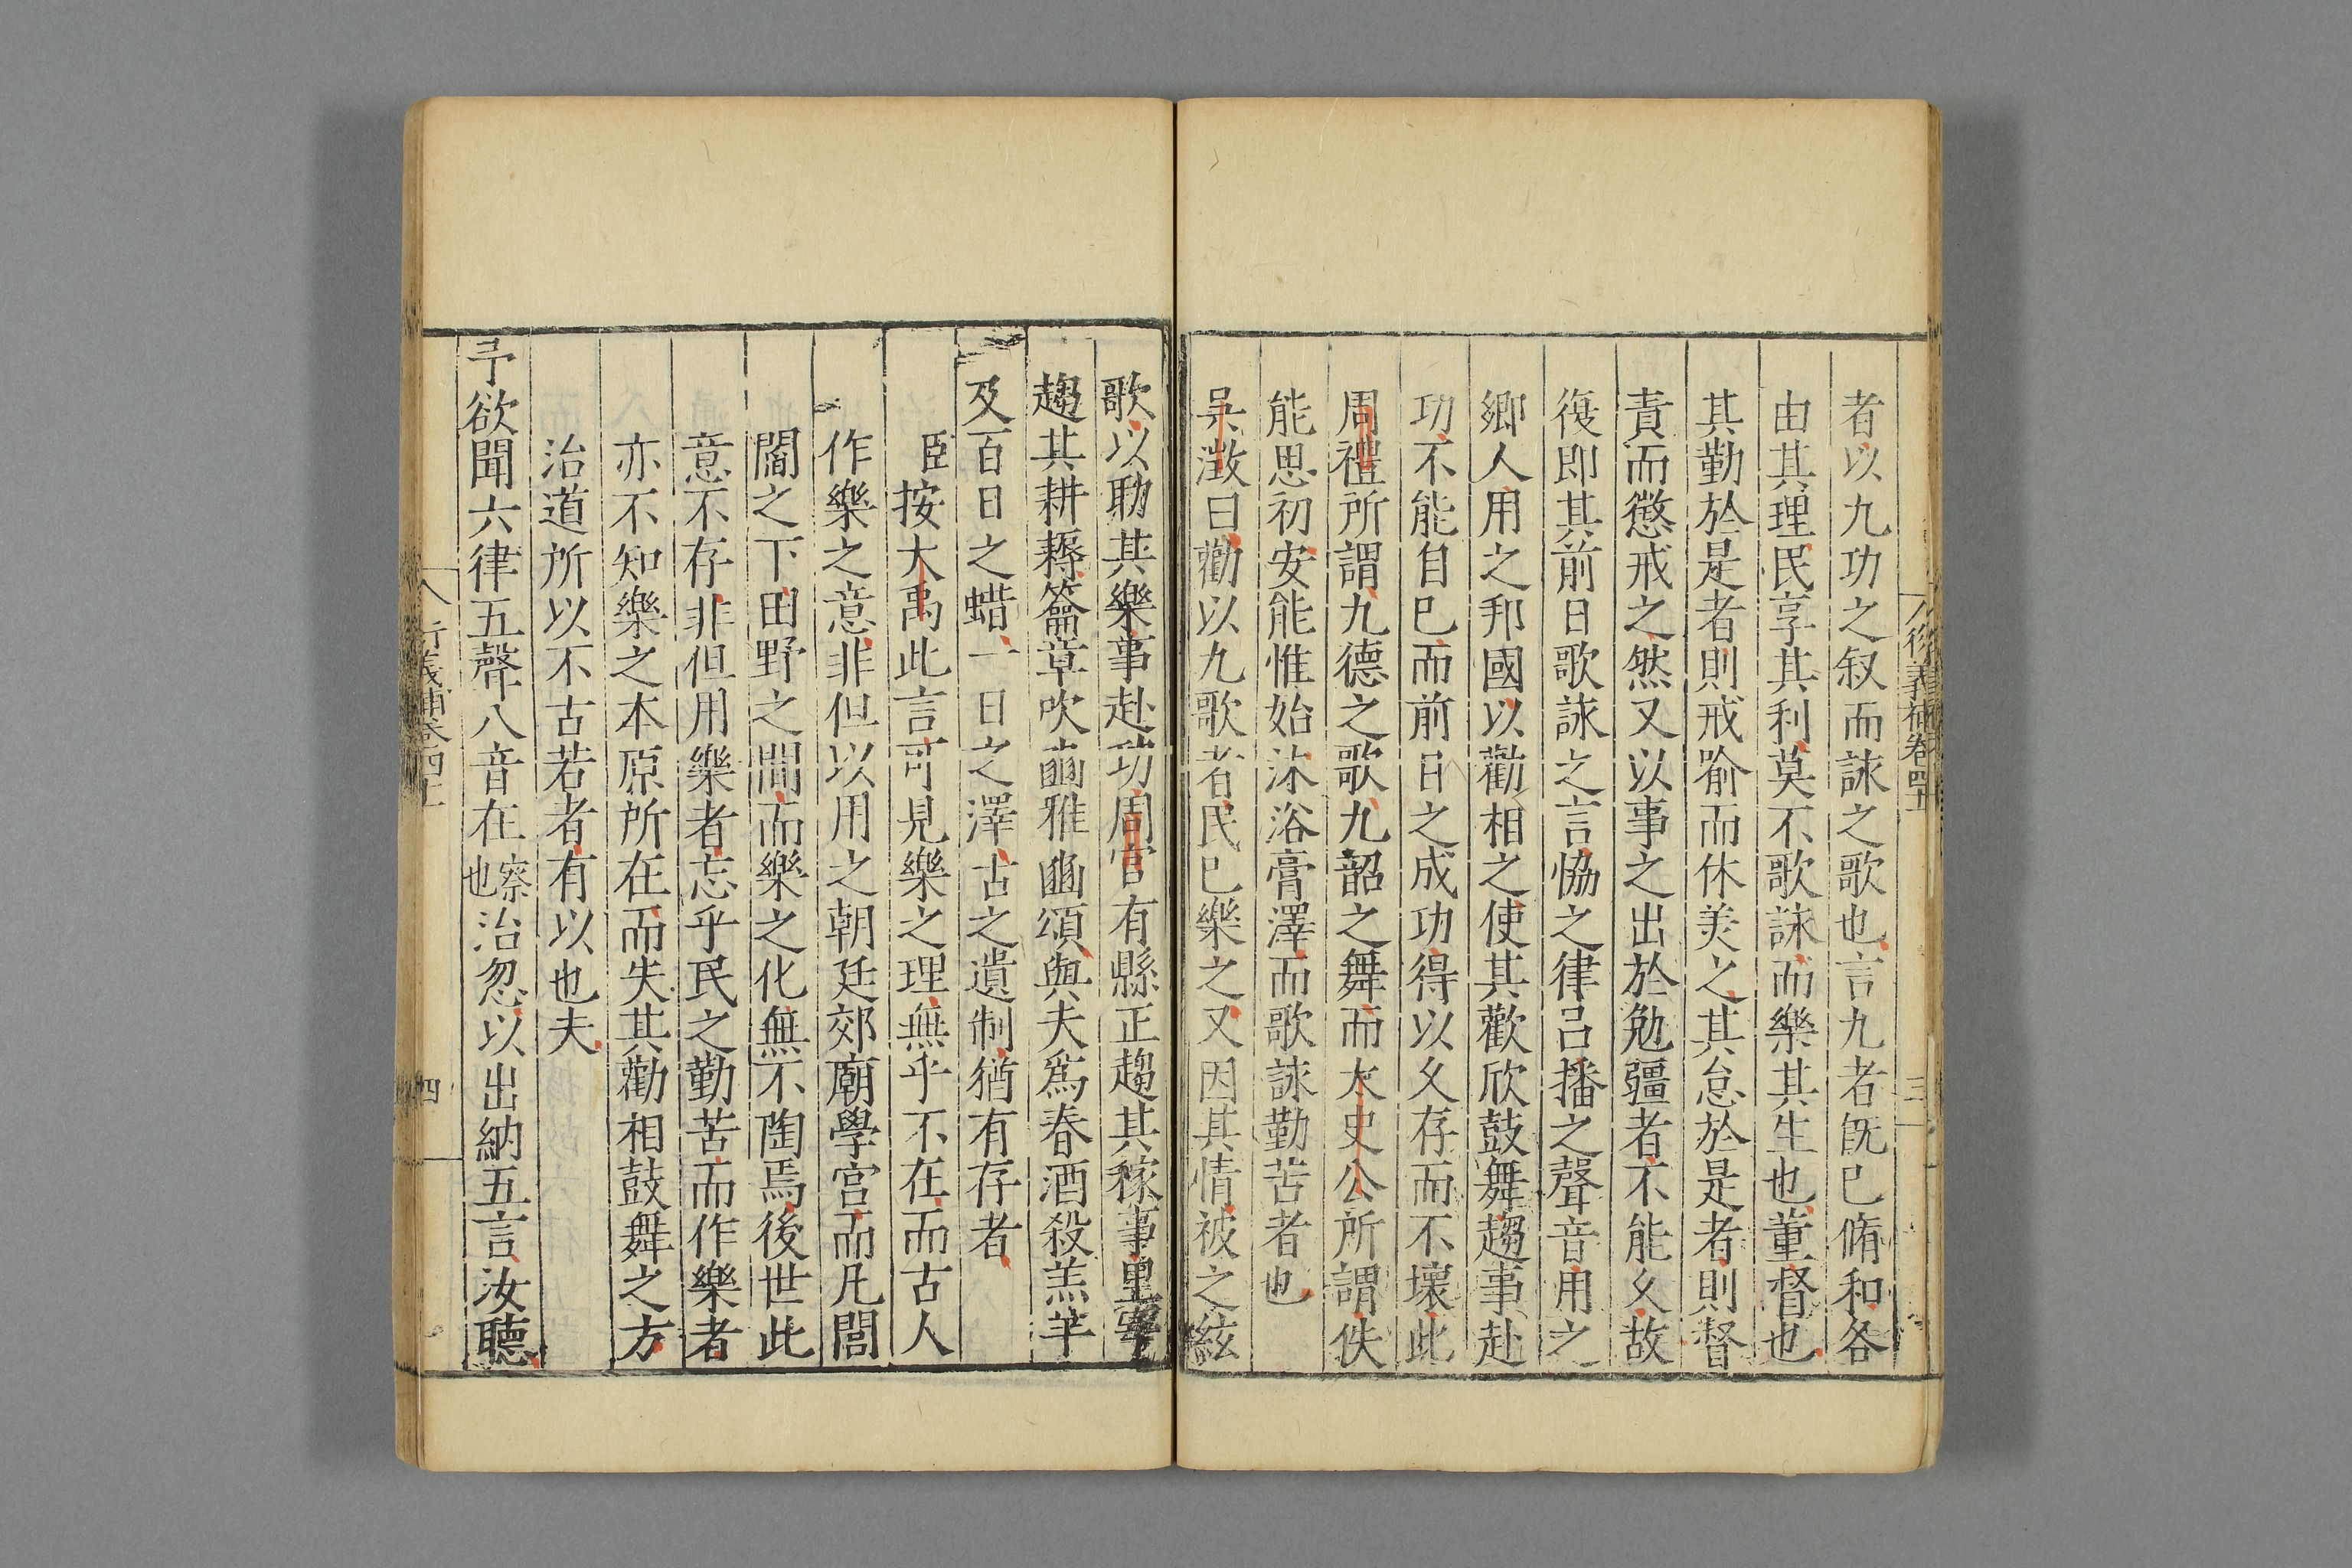 者以九功之叙而詠之歌也言九者旣已脩和各
由其理民享其利莫不歌詠而樂其生也董督也
其勤於是者則戒喻而休美之其怠於是者則督
責而懲戒之然又以事之出於勉彊者不能乆故
復即其前日歌詠之言恊之律吕播之聲音用之
鄉人用之邦國以勸相之使其歡欣鼓舞趨事赴
功不能自已而前日之成功得以乆存而不壞此
周禮所謂九德之歌九韶之舞而太史公所謂佚
能思初安能惟始沐浴膏澤而歌詠勤苦者也
吴澂曰勸以九歌者民已樂之又因其情被之絃
歌以助其樂事赴功周官有縣正趨其稼事里宰
趨其耕耨籥章吹豳雅豳頌與夫爲春酒殺羔羊
及百日之蜡一日之澤古之遺制猶有存者
臣按大禹此言可見樂之理無乎不在而古人
作樂之意非但以用之朝廷郊廟學宮而凡閭
閻之下田野之間而樂之化無不陶焉後世此
意不存非但用樂者忘乎民之勤苦而作樂者
亦不知樂之本原所在而失其勸相鼓舞之方
治道所以不古若者有以也夫
予欲聞六律五聲八音在察也治忽以出納五言汝聽
衍義補卷四十
四